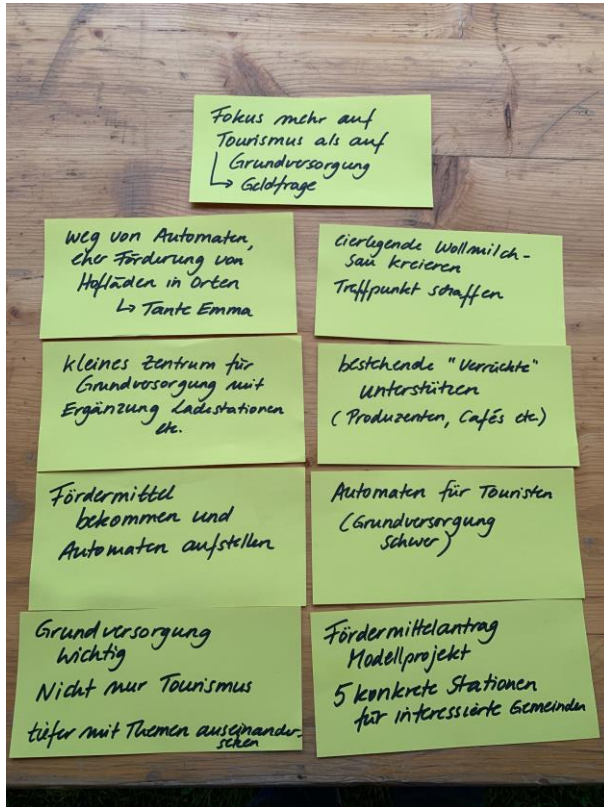 Fokus mehr auf
Tourismus als auf
Grundversorgung
↳ Geldfrage
weg von Automaten,
eher Förderung von
Hofläden in Orten
↳ Tante Emma
eierlegende Wollmilch-
sau kreieren
Treffpunkt schaffen
kleines Zentrum für
Grundversorgung mit
Ergänzung Ladestationen
etc.
bestehende "Verrückte"
unterstützen
(Produzenten, Cafés etc.)
Fördermittel
bekommen und
Automaten aufstellen
Automaten für Touristen
(Grundversorgung
schwer)
Grundversorgung
wichtig
Nicht nur Tourismus
tiefer mit Themen auseinander-
setzen
Fördermittelantrag
Modellprojekt
5 konkrete Stationen
für interessierte Gemeinden